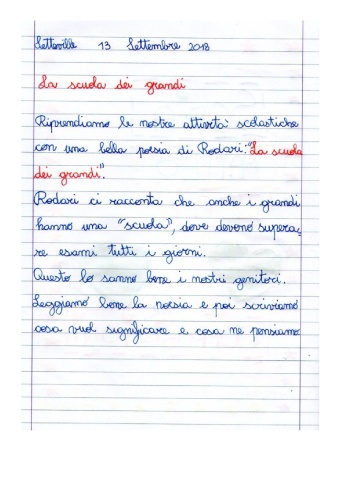 Setteville 13 Settembre 2018
La scuola dei grandi
Riprendiamo le nostre attività scolastiche
con una bella poesia di Rodari: "La scuola
dei grandi".
Rodari ci racconta che anche i grandi
hanno una "scuola", dove devono supera=
re esami tutti i giorni.
Questo lo sanno bene i nostri genitori.
Leggiamo bene la poesia e poi scriviamo
cosa vuol significare e cosa ne pensiamo